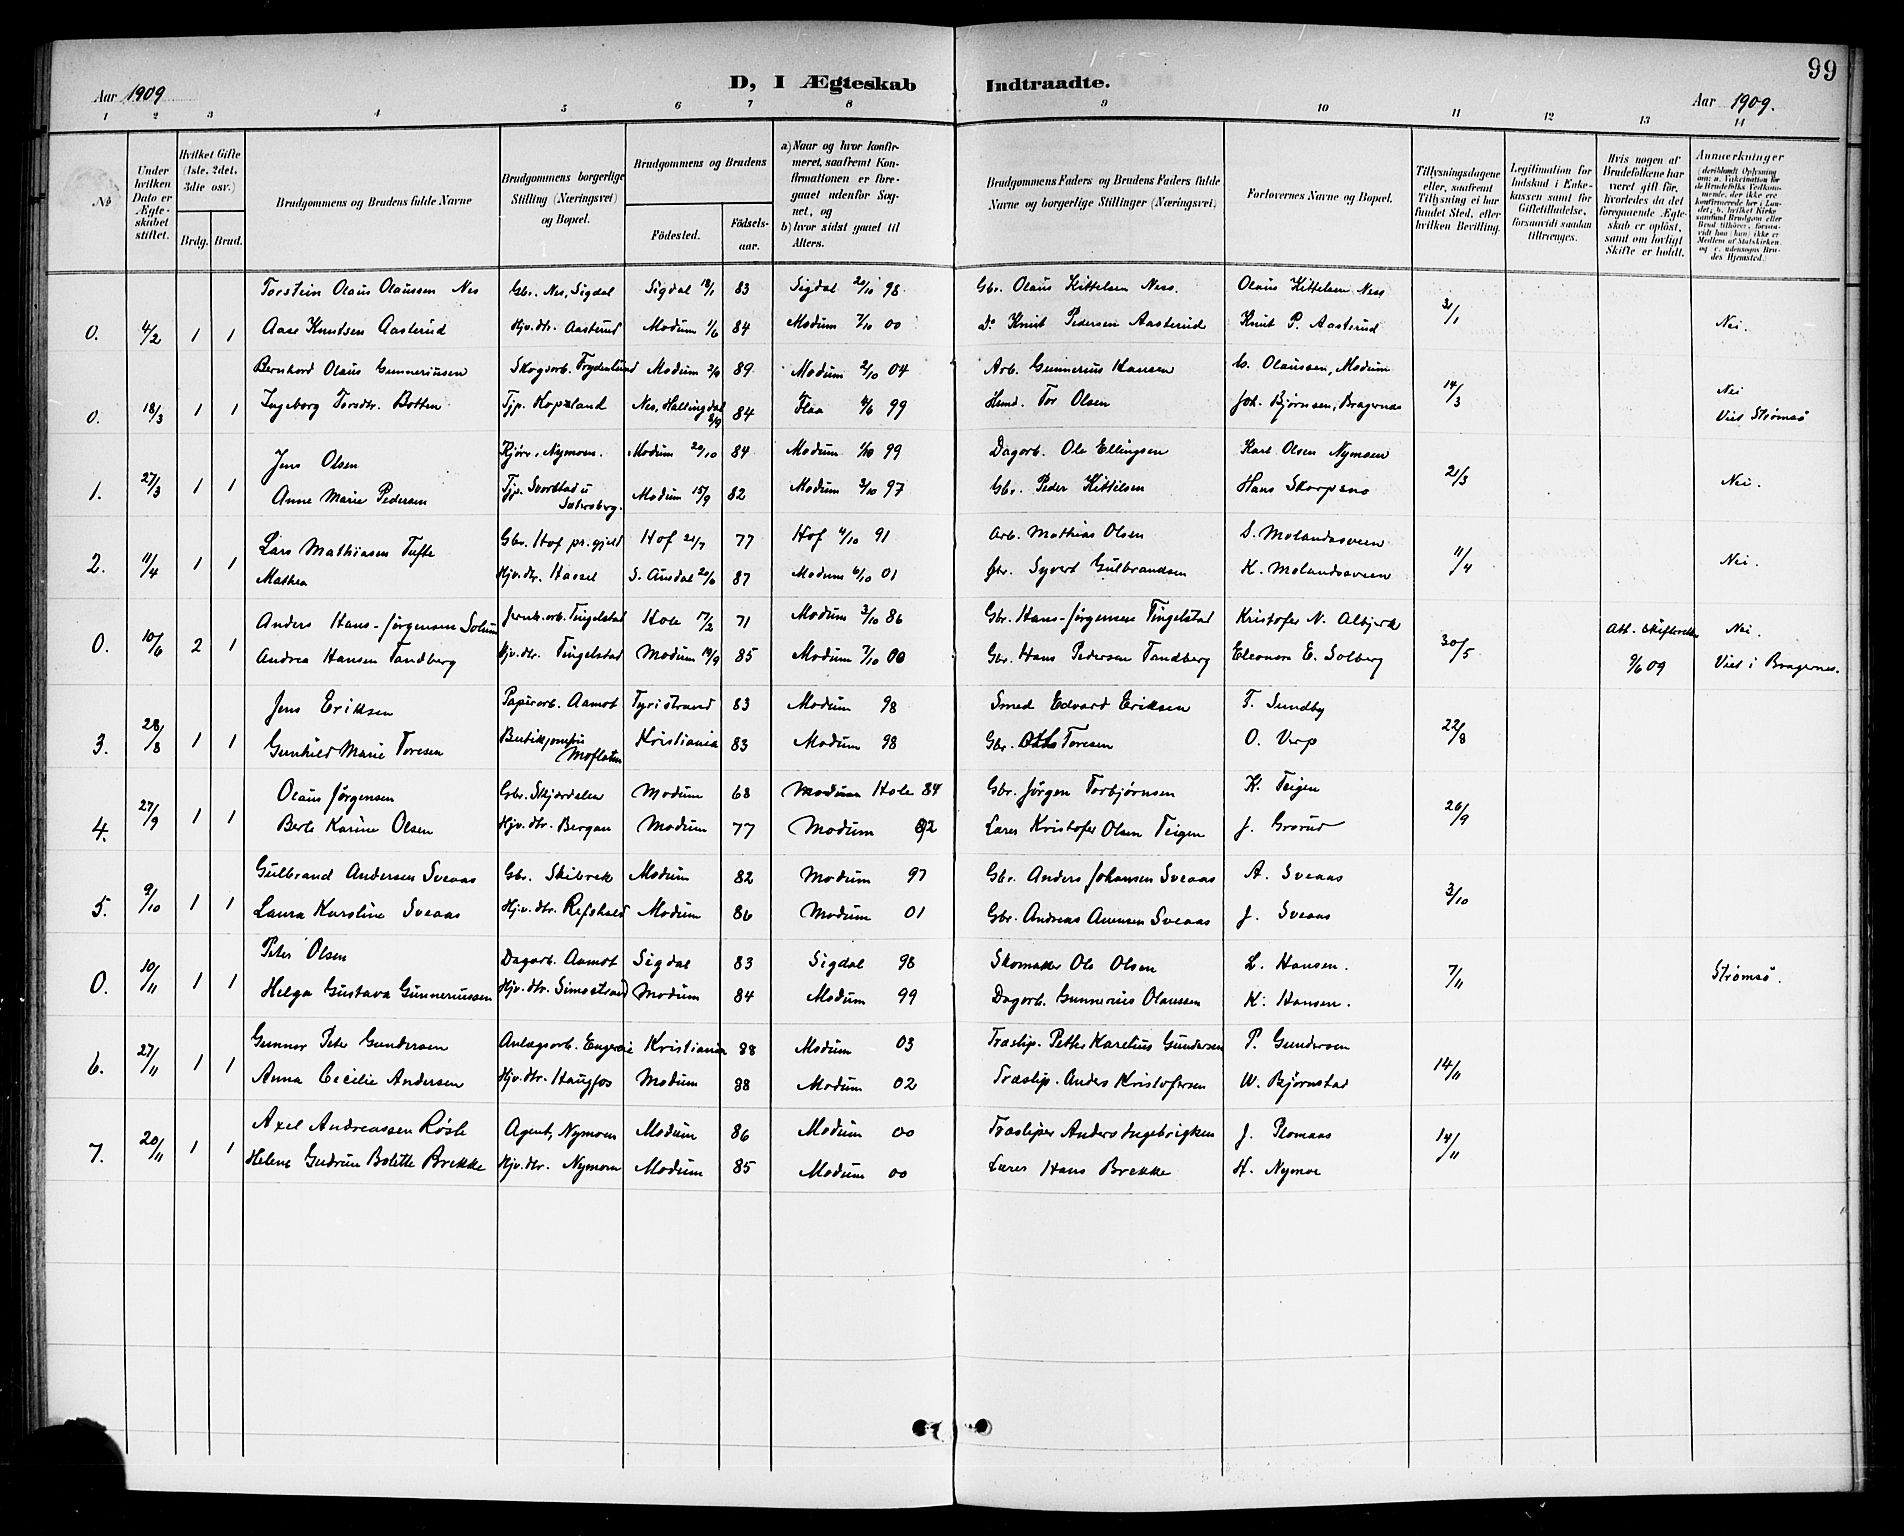 99
D, I Ægteskab Indtraadte.
Aar 1909
Aar 1909.
1 2 3 4 5 6 7 8 9 10 11 12 13 14
No
Under hvilken Dato er Ægteskabet stiftet.
Hvilket Gifte (1ste, 2det, 3die osv.)
Brdg. Brud.
Brudgommens og Brudens fulde Navne
Brudgommens borgerlige Stilling (Næringsvei) og Bopæl.
Brudgommens og Brudens
Födested.
Födselsaar.
a) Naar og hvor konfirmeret, saafremt Konfirmationen er foregaaet udenfor Sognet, og
b) hvor sidst gaaet til Alters.
Brudgommens Faders og Brudens Faders fulde Navne og borgerlige Stillinger (Næringsvei)
Forlovernes Navne og Bopæl.
Tillysningsdagene eller, saafremt Tillysning ei har fundet Sted, efter hvilken Bevilling.
Legitimation for Indskud i Enkekassen samt for Giftetilladelse, forsaavidt saadan tiltrænges.
Hvis nogen af Brudefolkene har været gift för, hvorledes da det foregaaende Ægteskab er oplöst, samt om lovligt Skifte er holdt.
Anmærkninger
Torstein Olaus Olaussen Nes Gbr. Nes, Sigdal Sigdal 18/1 83 Sigdal 20/10 98 Gbr. Olaus Kittelsen Ness. Olaus Kittelsen Ness 31/1
0. 4/2 1 1 Aase Knutsen Aasterud Hjv. dtr. Aasterud Modum 1/6 84 Modum 7/10 00 Do Knut Pedersen Aasterud Knut P. Aasterud Nei.
Bernhard Olaus Gunneriusen Skogsarb. Frydenlund Modum 89 Modum 2/10 04 Arb. Gunnerius Hansen O. Olaussen, Modum 14/3 Nei
0. 18/3 1 1 Ingeborg Torsdtr. Botten Tjp. Hopeland Nes, Hallingdal 84 Flaa 99 Tor Olsen Joh. Bjørnsen, Bragernes Viet Strømsø
Jens Olsen Kjøre, Nymoen. Modum 20/10 84 Modum 1/10 99 Dagarb. Ole Ellingsen Karl Olsen Nymoen 21/3
1. 27/3 1 1 Anne Marie Pedersen Tjp. Modum 15/9 82 Modum 3/10 97 Gbr. Peder Kittilsen Hans Skorpsmo Nei.
Lars Mathiasen Tufte Gbr. Hof pr.gjeld Hof 77 Hof 4/10 91 Arb. Mathias Olsen S. Molandsveen 11/4
2. 11/4 1 1 Mathea Hjv. dtr. Hassel S. Ausdal 20/6 87 Modum 6/10 01 Gbr. Syvert Gulbrandsen K. Molandsveen Nei.
Anders Hans-Jørgensen Solum Jernb.arb. Tingelstad Hole 17/2 71 Modum 3/10 86 Gbr. Hans-Jørgensen Tingelstad Kristofer N. Albjerk Att. skifteretten Nei.
0. 10/6 2 1 Andrea Hansen Tandberg Hjv. dtr. Tingelstad Modum 19/9 85 Modum 7/10 00 Gbr. Hans Pedersen Tandberg Eleonora E. Solberg 30/5 9/6 09 Viet i Bragernes.
Jens Eriksen Papirarb. Aamot Tyristrand 83 Modum 98 Smed Edvard Eriksen T. Sundby
3. 28/8 1 1 Gunhild Marie Toresen Butikjomfru Moflaten Kristiania 83 Modum 98 Gbr. Toresen O. Verp 22/8
Olaus Jørgensen Gbr. Skjærdalen Modum 68 Modum Hole 84 Gbr. Jørgen Torbjørnsen K. Teigen 26/9
4. 27/9 1 1 Berte Karine Olsen Hjv. dtr. Bergan Modum 77 Modum 92 Lærer Kristofer Olsen Teigen J. Grorud
Gulbrand Andersen Sveaas Gbr. Skibrek Modum 82 Modum 97 Gbr. Anders Johansen Sveaas A. Sveaas
5. 9/10 1 1 Laura Karoline Sveaas Hjv. dtr. Refshald Modum 86 Modum 01 Gbr. Andreas Sveaas J. Sveaas 3/10
Peter Olsen Dagarb. Aamot Sigdal 83 Sigdal 98 Skomaker Ole Olsen L. Hansen.
0. 10/11 1 1 Helga Gustava Gunneriussen Hjv. dtr. Simostrand Modum 84 Modum 99 Dagarb. Gunnerius Olaussen K. Hansen. 7/11 Strømsø.
Gunnar Peter Gundersen Anlægsarb. Kristiania 88 Modum 03 Træslip. Petter Karelius Gundersen P. Gundersen
6. 27/11 1 1 Anna Cecilie Andersen Hjv. dtr. Haugfos Modum 88 Modum 02 Træslip. Anders Kristofersen W. Bjørnstad 14/11
Axel Andreassen Røste Agent, Nymoen Modum 86 Modum 00 Træsliper Anders Ingebrigtsen J. Plomaas
7. 20/11 1 1 Helene Gudrun Bolette Brekke Hjv. dtr. Nymoen Modum 85 Modum 00 Lærer Hans Brekke H. Nymoe 14/11